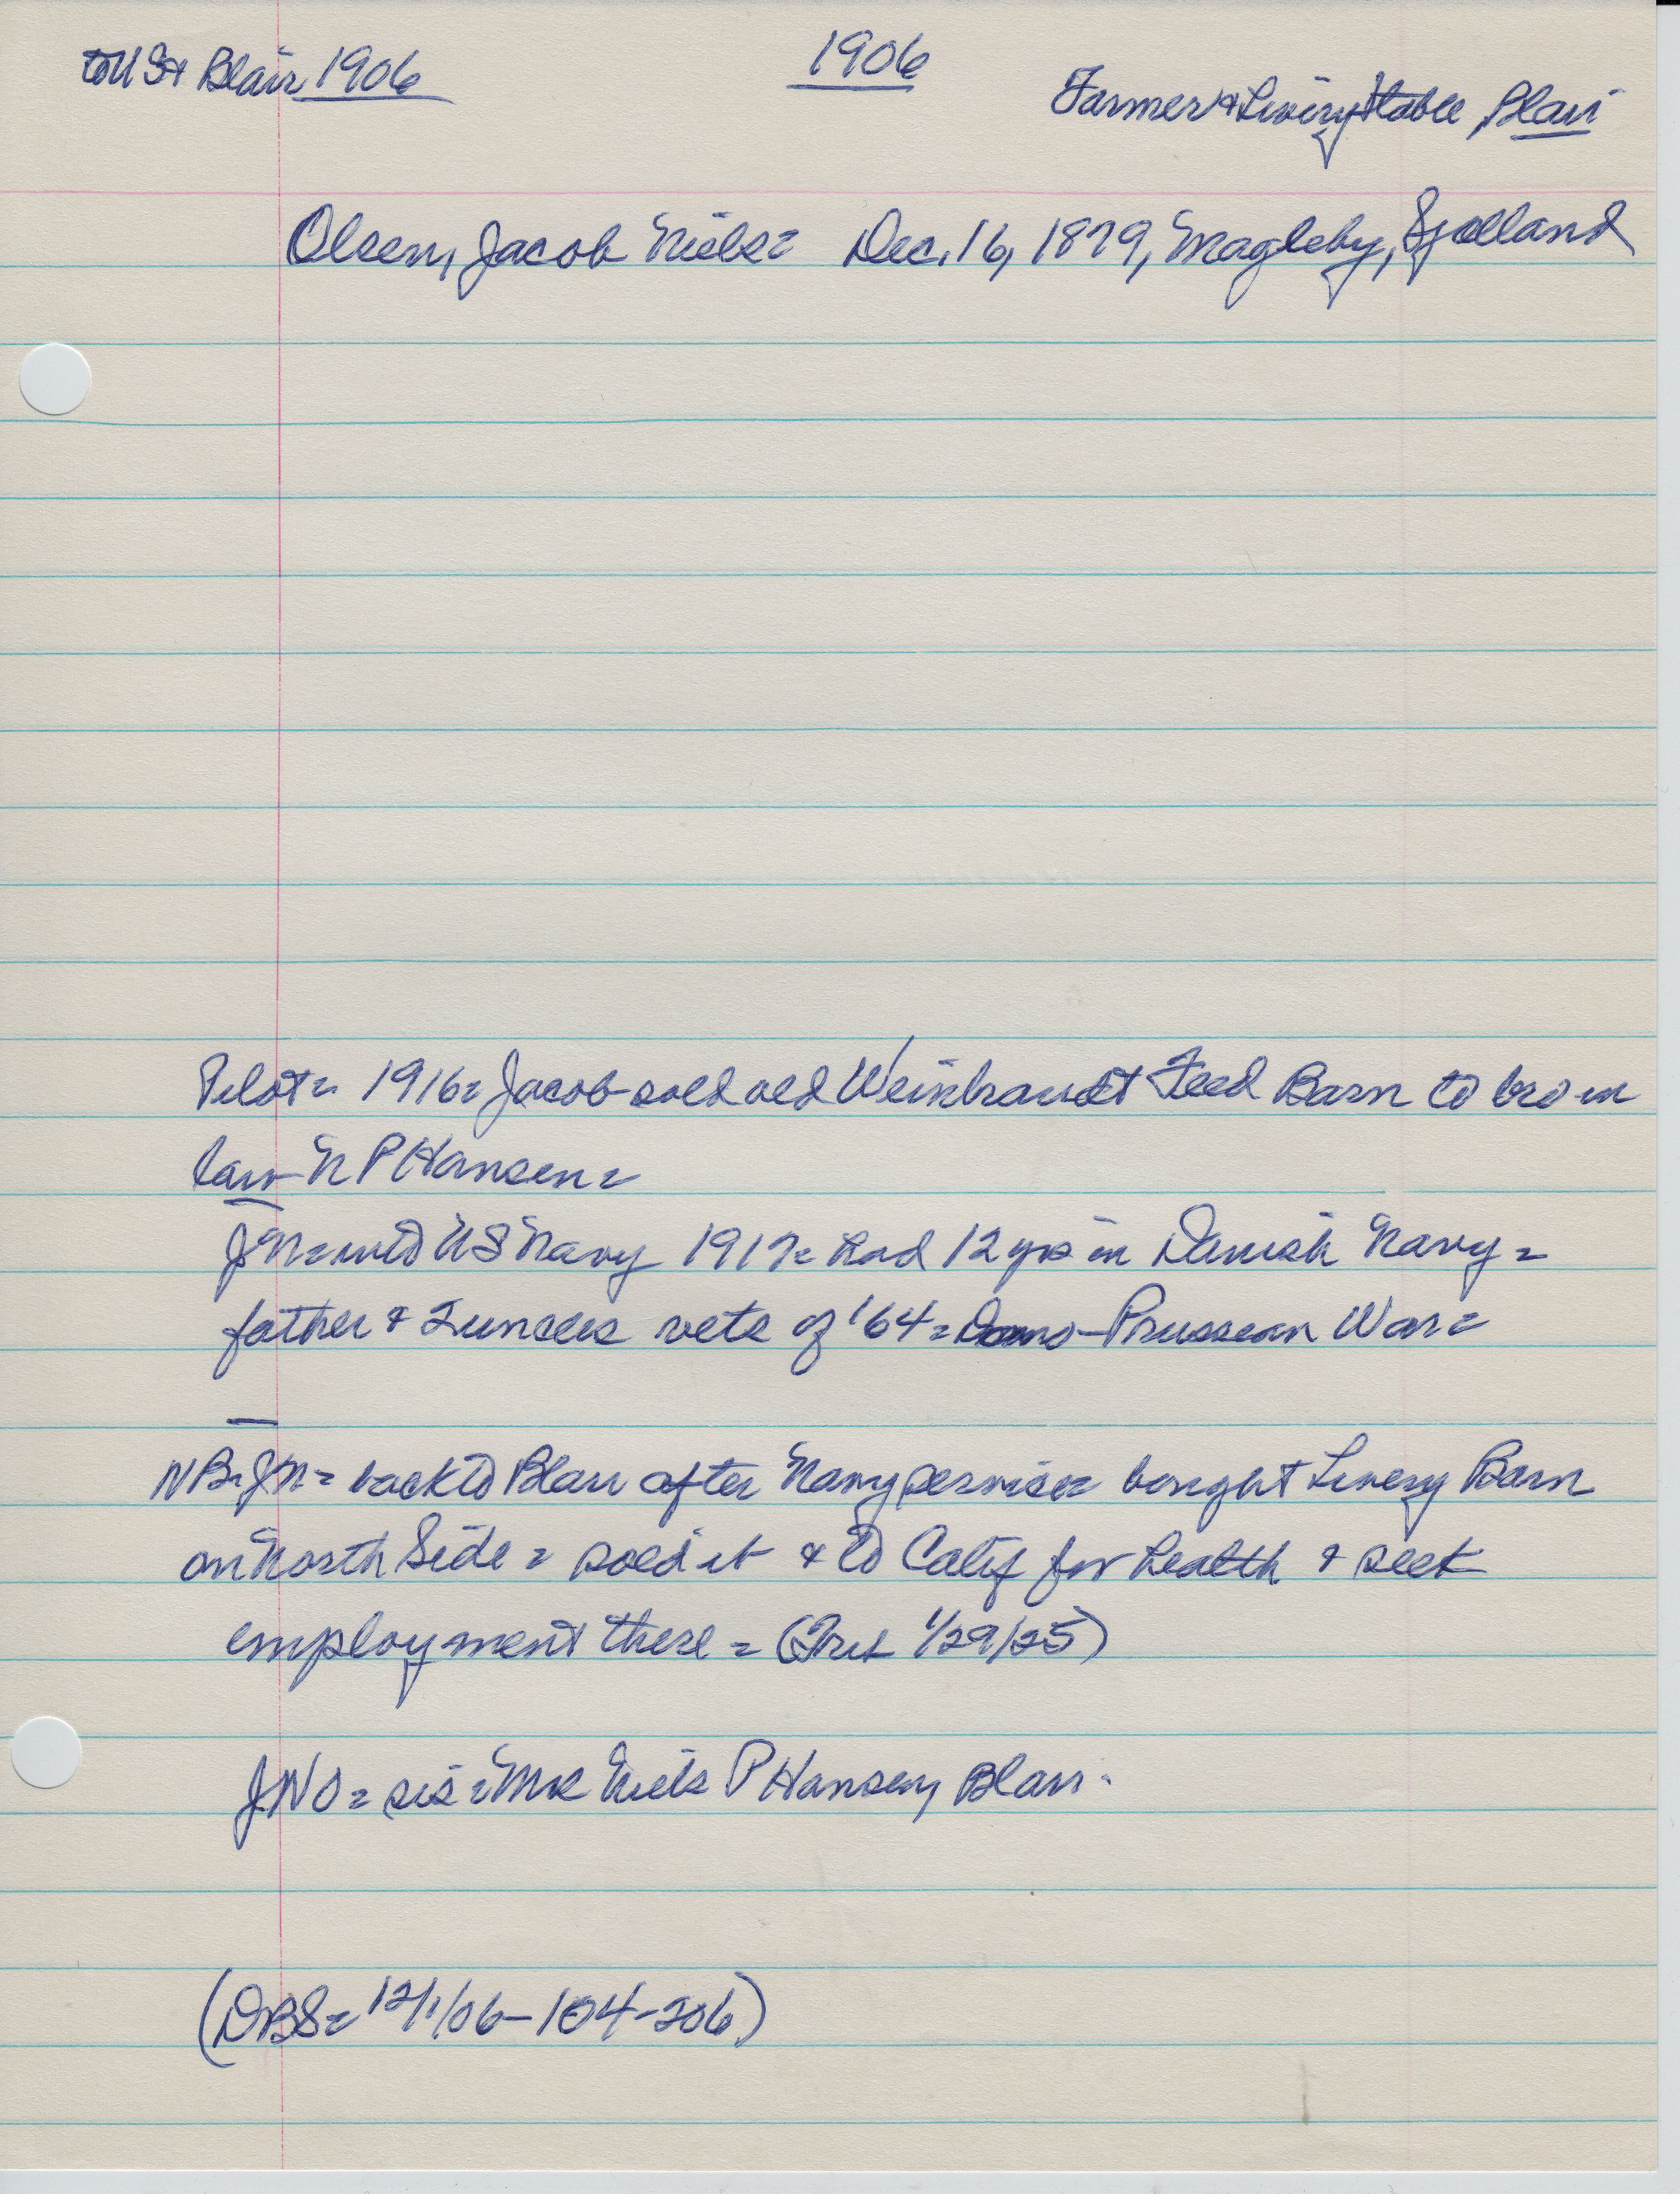 to US & Blair 1906
1906
Farmer & Livery Stable, Blair
Olsen, Jacob Niels= Dec. 16, 1879, Magleby, Sjælland
Pilot= 1916= Jacob sold old Weinbrandt Feed Barn to bro in
law N P Hansen=
JN= into US Navy 1917= had 12 yrs in Danish Navy=
father & 2 uncles vets of '64= Dano-Prussean War=
NB= JN= back to Blair after Navy service= bought Livery Barn
on North Side= sold it & to Calif for health & seek
employment there= (Trib 1/29/25)
JNO= sis= Mrs Niels P Hansen, Blair.
(DBS= 12/1/06-104-206)